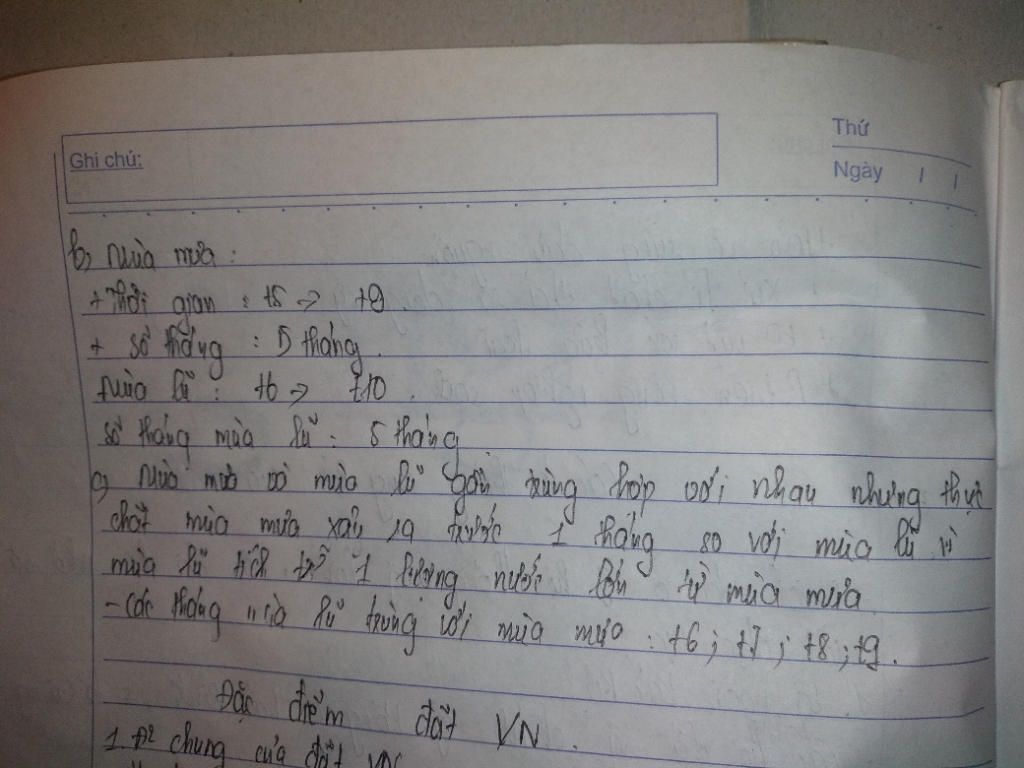 Ghi chú:
Thứ
Ngày / /
b, Mùa mưa :
+ Thời gian : t5 => t9
+ số tháng : 5 tháng.
Mùa lũ : t6 => t10.
số tháng mùa lũ : 5 tháng
c, Mùa mưa và mùa lũ gần trùng hợp với nhau nhưng thực
chất mùa mưa xảy ra trước 1 tháng so với mùa lũ vì
mùa lũ tích trữ 1 lượng nước lớn từ mùa mưa
- Các tháng mùa lũ trùng với mùa mưa : t6 ; t7 ; t8 ; t9.
Đặc điểm đất VN.
1 Đ² chung của đất VN